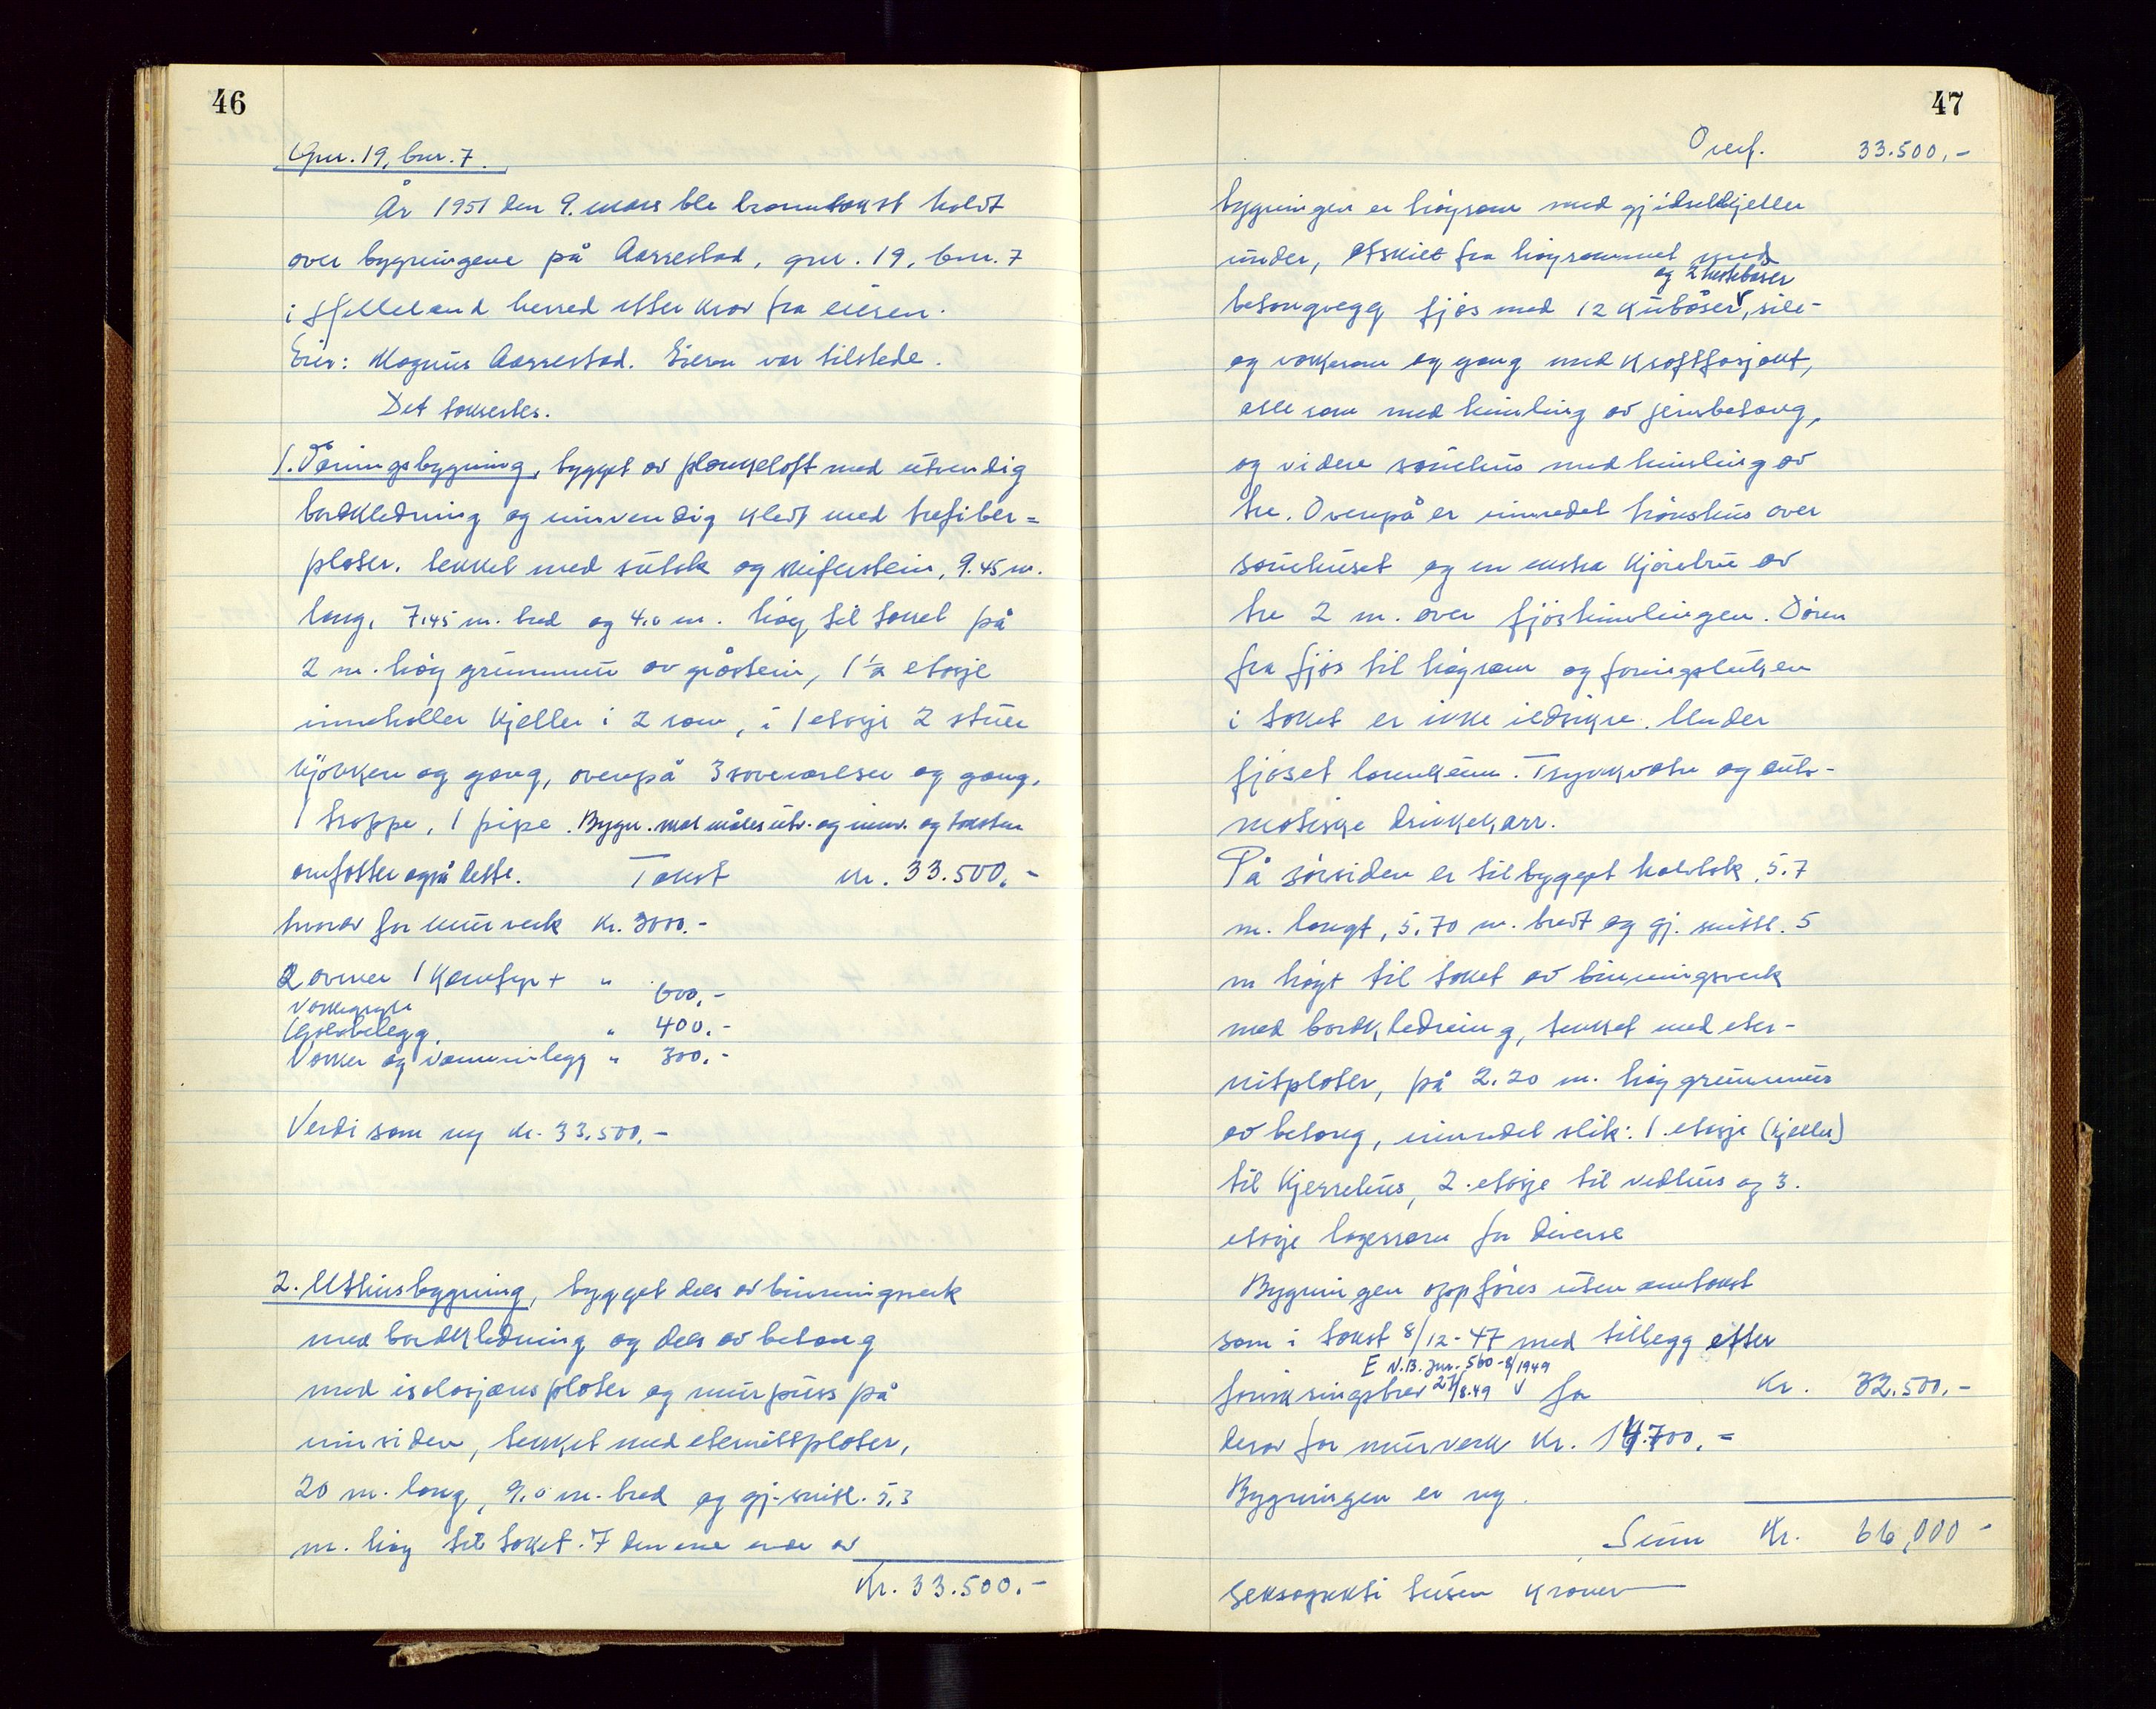 46
Gnr. 19, bnr. 7.
År 1951 den 9. mars ble branntakst holdt
over bygningene på Aarrestad, gnr. 19, bnr. 7
i Helleland herred etter krav fra eieren.
Eier: Magnus Aarrestad. Eieren var tilstede.
Det takseres.
1. Våningsbygning, bygget av plankeloft med utvendig
bordkledning og innvendig kledt med trefiber=
plater. tekket med sutak og skiferstein, 9.45 m.
lang, 7,45 m. bred og 4.0 m. høg til taket på
2 m. høg grunnmur av gråstein, 1 1/2 etasje
inneholler kjeller i 2 rom, i 1 etasje 2 stuer
kjøkken og gang, ovenpå 3 soveværelser og gang,
1 trappe, 1 pipe. Bygn. skal males utv. og innv. og taksten
omfatter også dette. Takst kr. 33.500.-
hvorav for murverk kr. 3000.-
2 ovner 1 komfyr + " 600,-
vaskegryte
Golvbelegg. " 400.-
Vasker og vanninlegg " 300.-
Verdi som ny kr. 33.500,-
2. Uthusbygning, bygget dels av binningsverk
med bordkledning og dels av betong
med isolasjons plater og murpuss på
innsiden, tekket med eternittplater,
20 m. lang, 9.0 m. bred og gj.snitl. 5,3
m. høg til taket. I den ene ende av
Kr. 33.500.-
47
Overf. 33.500,-
bygningen er høyrom med gjødselkjeller
under, atskilt fra høyrommet med
og 2 hestebåser
betongvegg fjøs med 12 kubåser, sile-
og vaskerom og gang med kraftforsjakt,
alle rom med himling av jernbetong,
og videre sauehus med himling av
tre. Ovenpå er innredet hønsehus over
sauehuset og en ekstra kjørebru av
tre 2 m. over fjøshimlingen. Døren
fra fjøs til høyrom og foringsluken
i taket er ikke ildsikre. Under
fjøset landkum. Trykkvatn og auto-
matiske drikkekarr.
På sørsiden er tilbygget halvtak, 5.7
m. langt, 5.70 m. bredt og gj. snittl. 5
m høgt til taket av binningsverk
med bordkledning, tekket med eter-
nitplater, på 2.20 m. høg grunnmur
av betong, innredet slik: 1. etasje (kjeller)
til kjerrehus, 2. etasje til vedhus og 3.
etasje lagerrom for diverse
Bygningen oppføres uten omtakst
som i takst 8/12-47 med tillegg etter
E N.B. jnr. 560-8/1949
forsikringsbrev 27/8.49 V for Kr. 32.500.-
derav for murverk kr. 14.700.-
Bygningen er ny.
Sum Kr. 66,000-
Seksogseksti tusen kroner